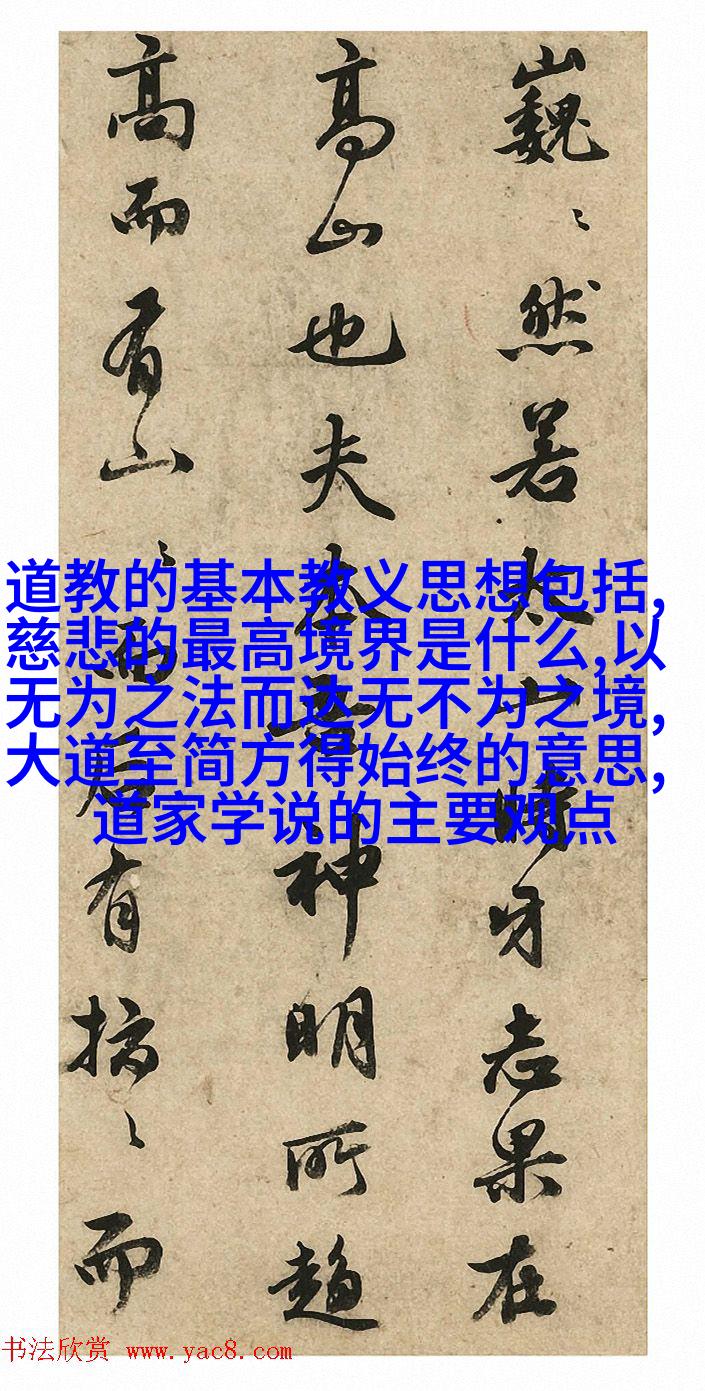 巍〻然若太山時牙志果在
高山也夫音神明所趨
高而有山〻而后有〻而
道教的基本教义思想包括,
慈悲的最高境界是什么,以
无为之法而达无不为之境,
大道至简方得始终的意思,
道家学说的主要观点
书法欣赏 www.yac8.com